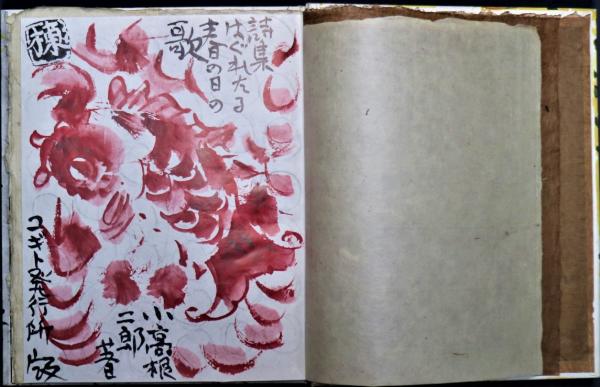 詩集
はぐれたる
春の日の
歌
小高根
二郎
著
コギト発行所版
棟